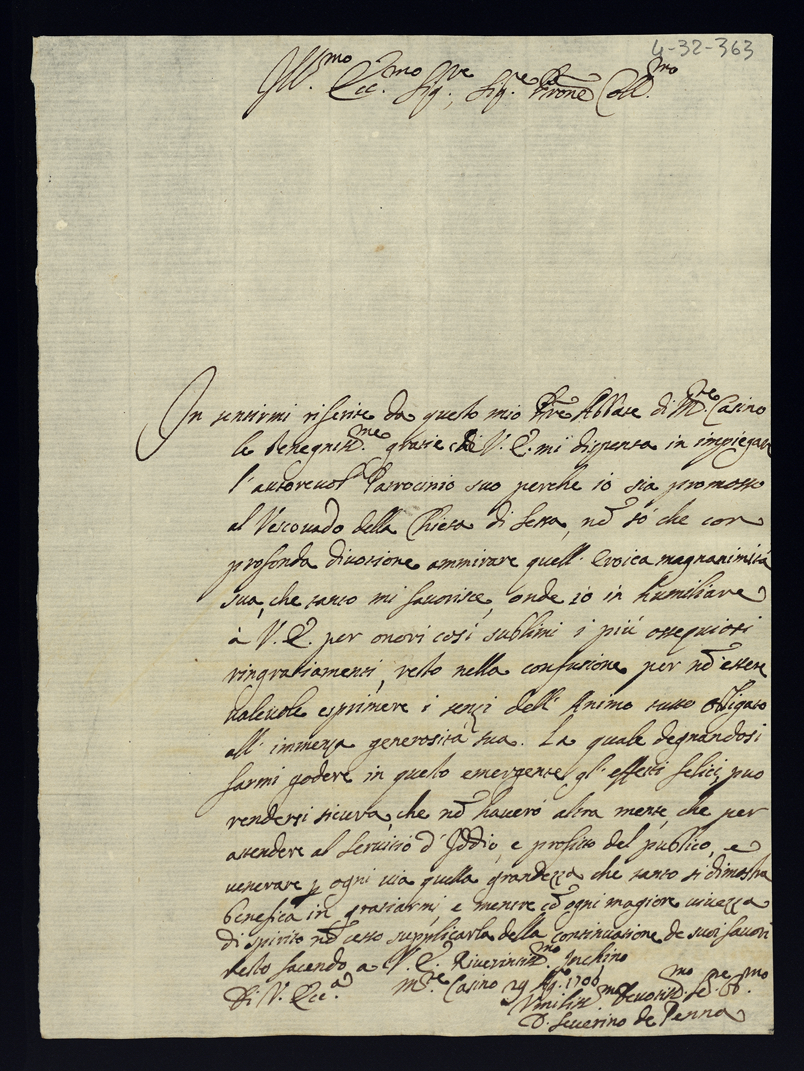 4-32-363
Ill.mo Ecc.mo Sig.re, Sig.re Prone Coll.mo
In sentirmi riferire da questo mio Pre Abbate di M.te Casino
le benegniss.me grazie che V. E. mi dispensa in impiegare
l'autorevol Patrocinio suo perche io sia promosso
al Vescovado della Chiesa di Sessa, nō sò che con
profonda divozione ammirare quell' eroica magnanimità
sua, che tanto mi favorisce, onde io in humiliare
à V. E. per onori così sublimi i più ossequiosi
ringratiamenti, resto nella confusione per nō essere
valevole esprimere i senzi dell' Animo tutto obligato
all' immenza generosità sua. La quale degnandosi
farmi godere in questo emergente gl' effetti felici, può
rendersi sicura, che nō haverò altra mente, che per
attendere al servitio d' Iddio, e profitto del publico, e
venerare p ogni via quella grandezza che tanto si dimostra
benefica in gratiarmi, e mentre cō ogni magiore vivezza
di spirito nō cesso supplicarla della continuatione de suoi favori
resto facendo a V. E. Riverentiss.mo Inchino
Di V. Ecc.a M.te Casino 29 1706
Umiliss.mo Devotiss.mo Se.re Ob.mo
D. Severino de Penna